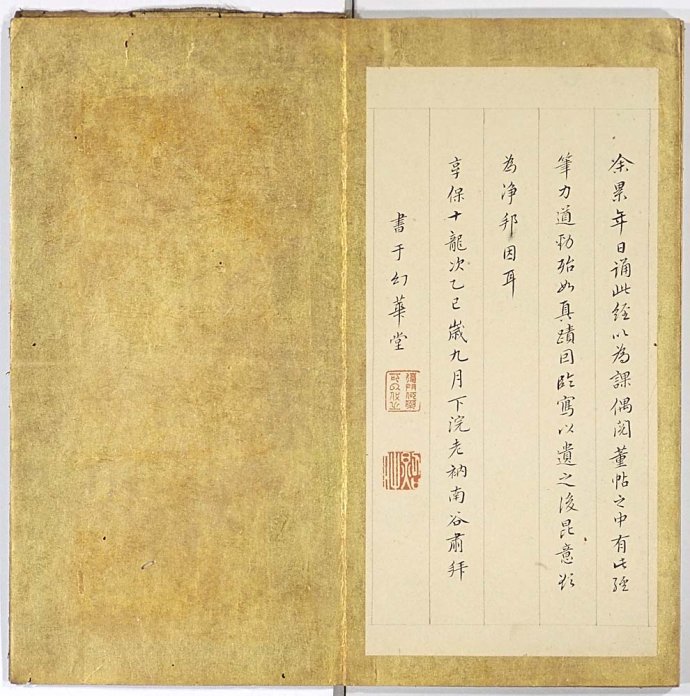 余累年日誦此經以為課偶閱董帖之中有此經
筆力遒勁殆如真蹟因臨寫以遺之後昆意欲
為淨邦因耳
享保十龍次乙巳歲九月下浣老衲南谷肅拜
書于幻華堂